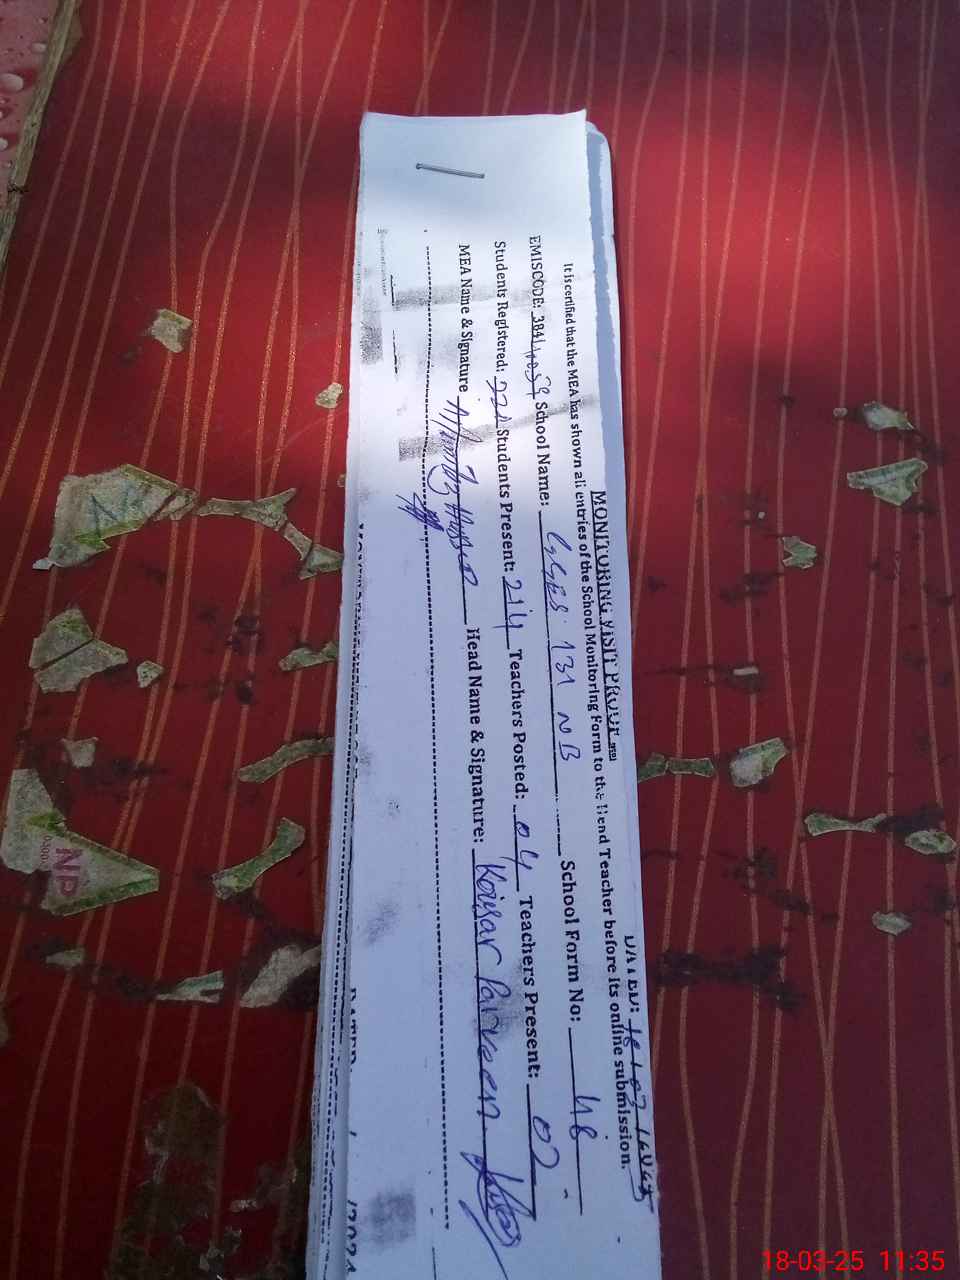 MONITORING VISIT PROOF
DATED: 18/03/2025
It is certified that the MEA has shown all entries of the School Monitoring Form to the Head Teacher before its online submission.
EMISCODE: School Name: GGES 131 NB School Form No: 48
Students Registered: Students Present: 214 Teachers Posted: 04 Teachers Present: 02
MEA Name & Signature Mumtaz Hussain Head Name & Signature: Kaisar Parveen
NP
18-03-25 11:35